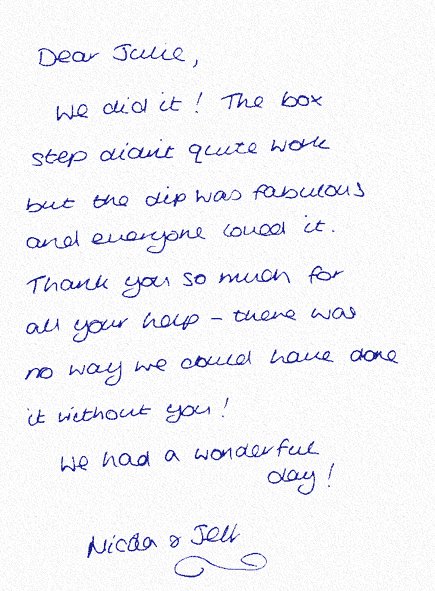 Dear Julie,
We did it! The box
step didn't quite work
but the dip was fabulous
and everyone loved it.
Thank you so much for
all your help - there was
no way we could have done
it without you!
We had a wonderful
day!
Nicola & Jeff